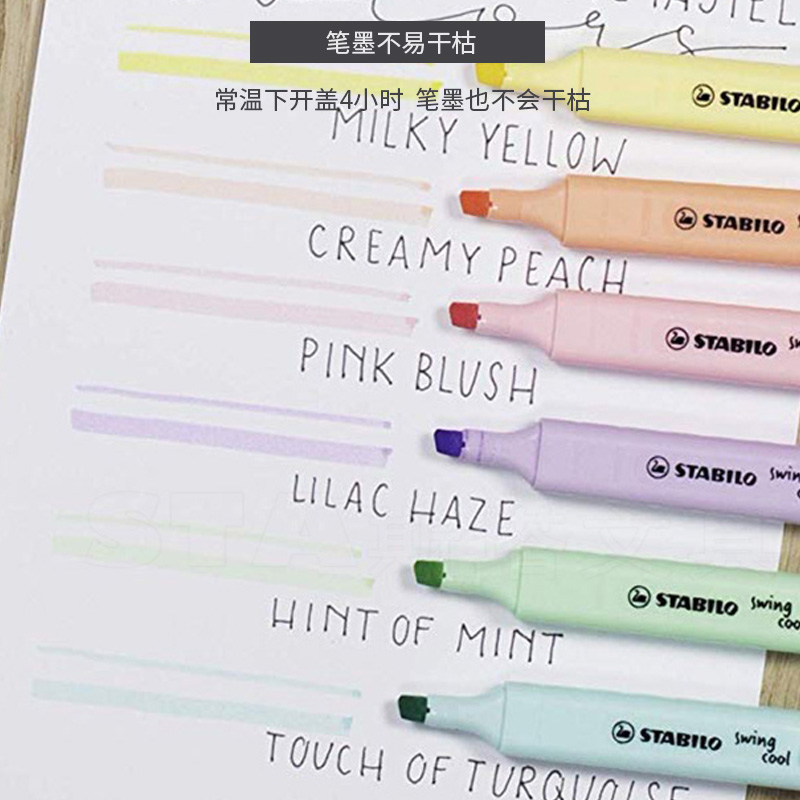 PASTEL
笔墨不易干枯
STABILO
常温下开盖4小时 笔墨也不会干枯
MILKY YELLOW
STABILO
CREAMY PEACH
STABILO
PINK BLUSH
STABILO swing
LILAC HAZE
STABILO swing
cool
HINT OF MINT
STABILO swing
cool
TOUCH OF TURQUOISE